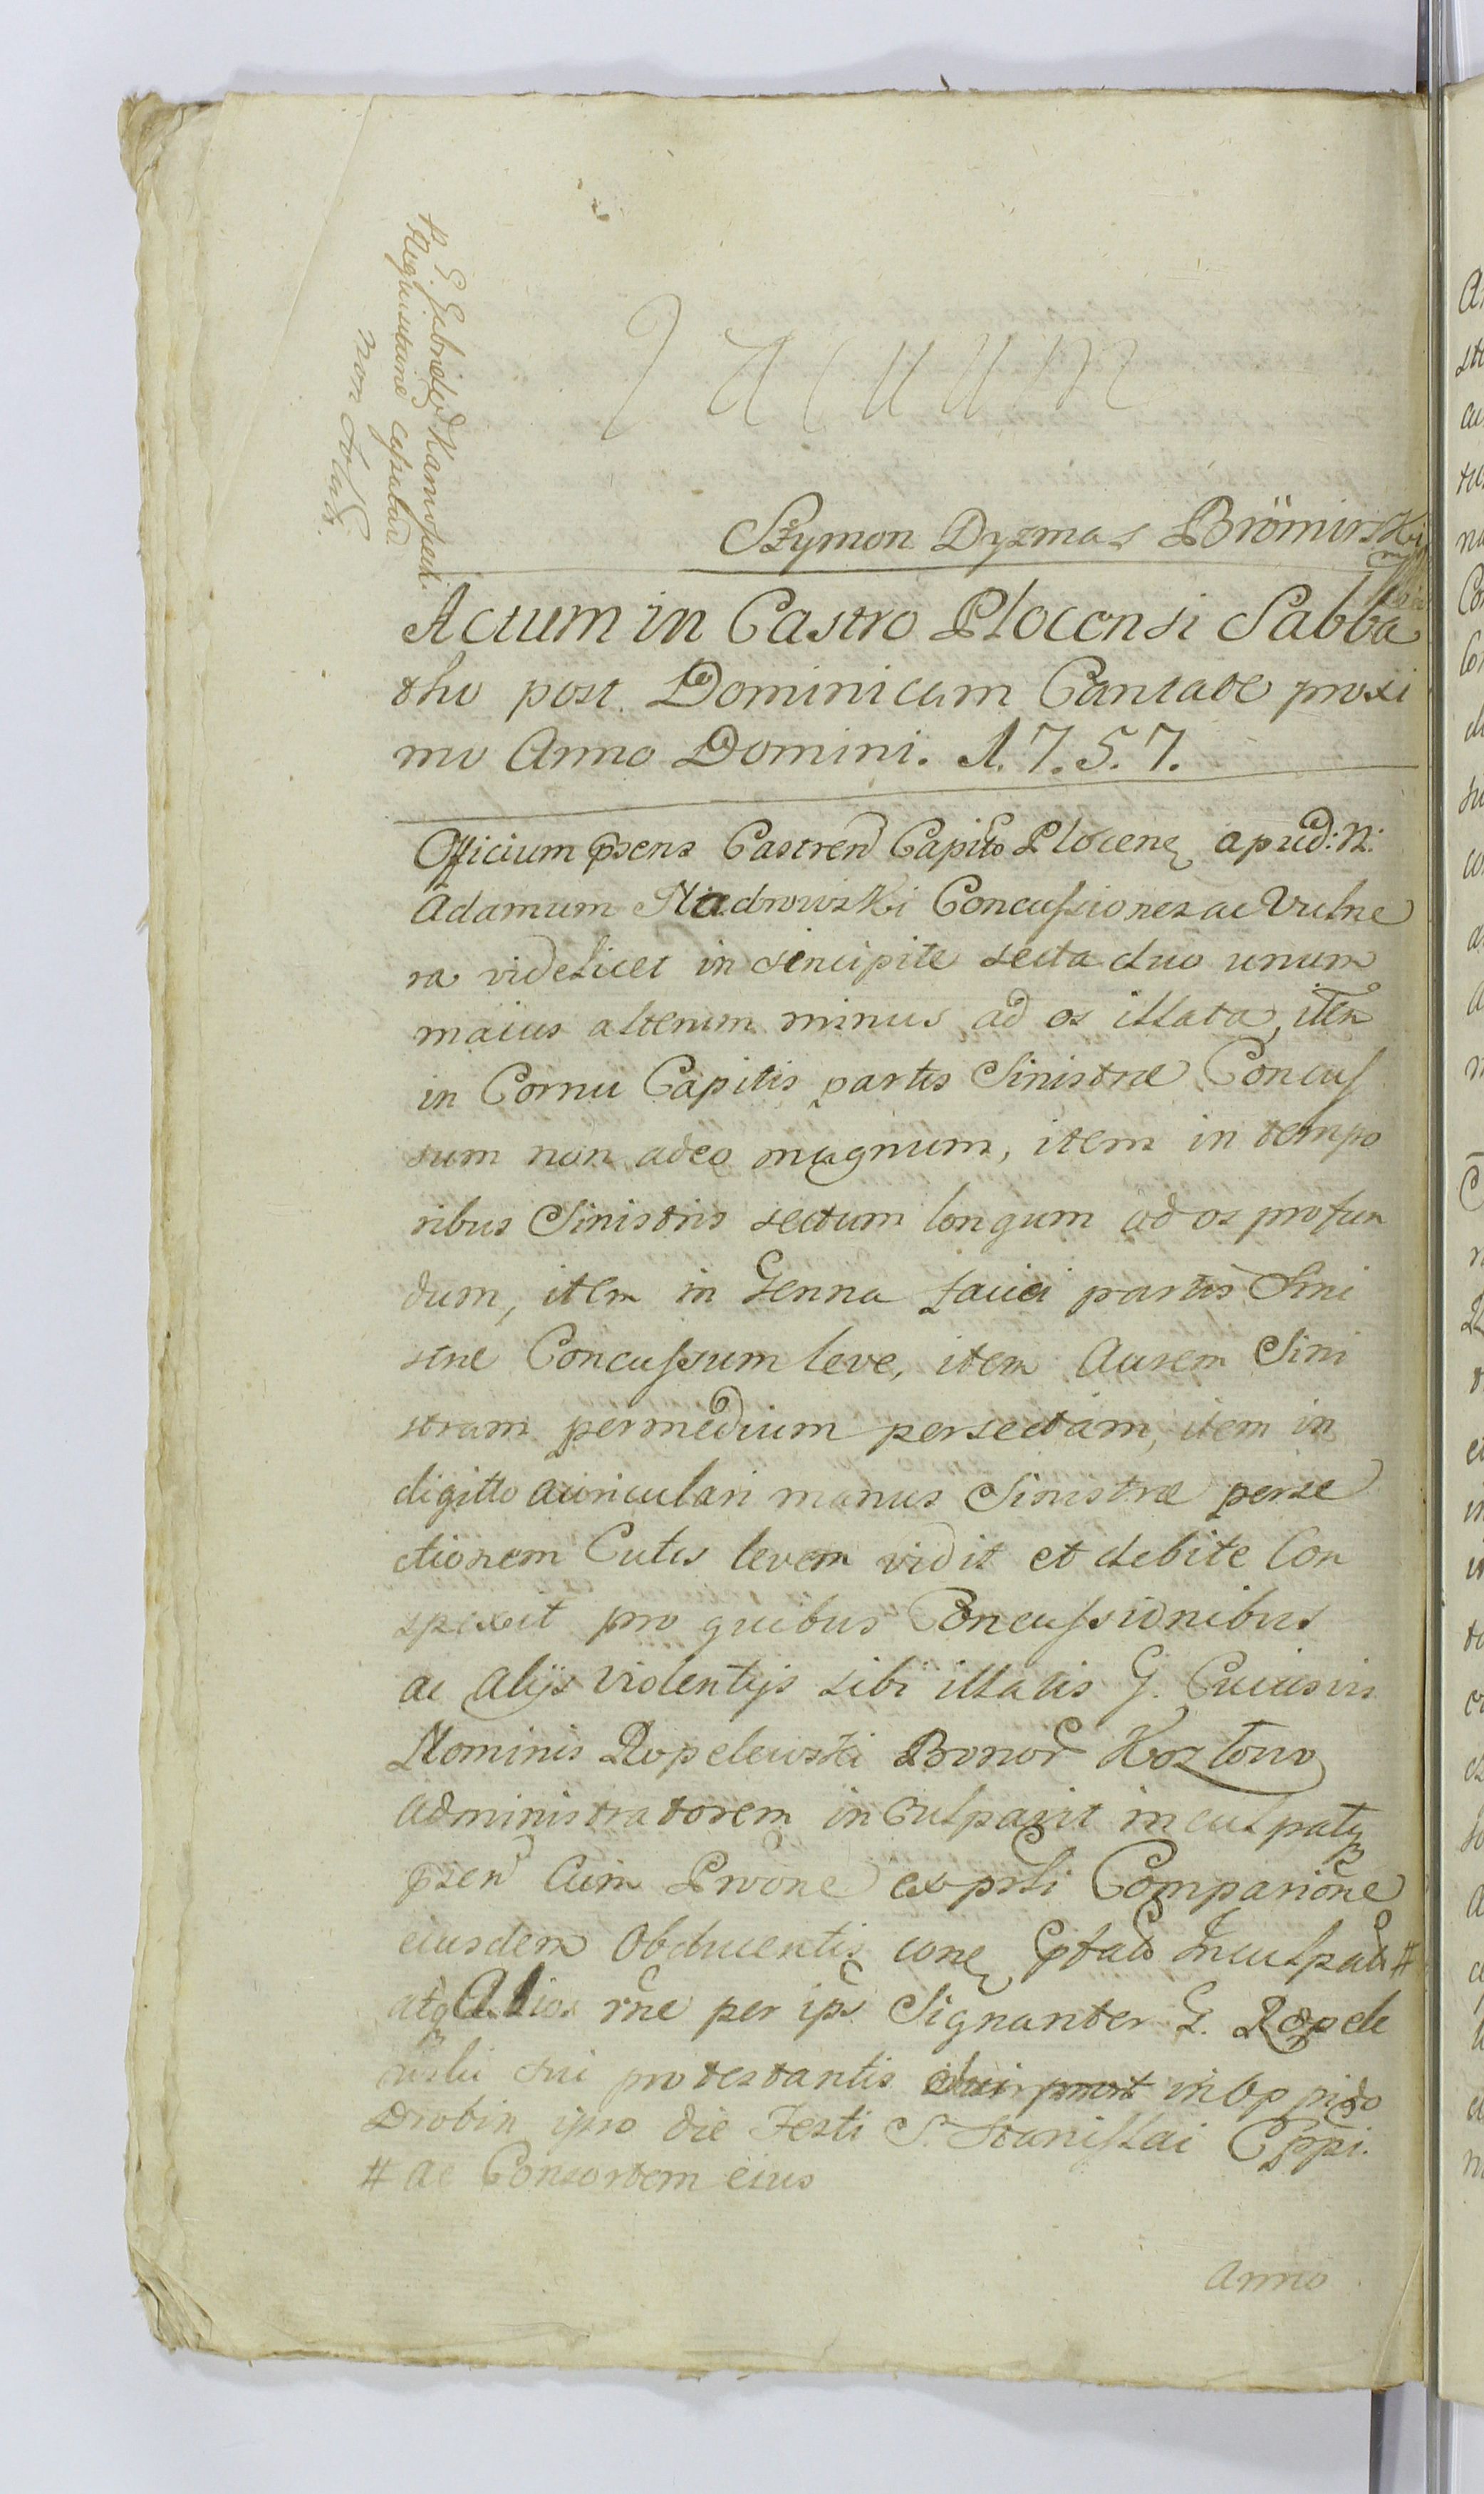 Vacuum
Szymon Dyzmas Bromirski
Actum in Castro Plocensi Sabba
tho post Dominicam Cantate proxi
mo Anno Domini. 1.7.5.7.
Officium psens Castren Capitle Plocens apud: N:
Adamum Niedrowski Concussiones ac Vulne
ra videlicet in sincipite secta duo unum
maius alterum minus ad os illata, item
in Cornu Capitis partis Sinistræ Concus
sum non adeo magnum, item in tempo
ribus Sinistris sectum longum ad os profun
dum, item in Genna faciei partis Sini
stræ Concussum leve, item Aurem Sini
stram per medium persectam, item in
digitto auriculari manus Sinistræ perse
ctionem Cutis levem vidit et debite Con
spexit pro quibus Concussionibus
ac alijs violentijs sibi illatis G. Cuiusvis
Nominis Ropelewski Bonor Kozłowo
administratorem inculpavit inculpatq
psen Cum Prvone expssi Comparione
eiusdem Obducentis cone Inculpati #
atq Alios rne per ips Signanter G. Ropele
wski sui protestantis in Oppido
Drobin ipso die Festi S. Stanislai Eppi.
# ac Consortem eius
Anno
non